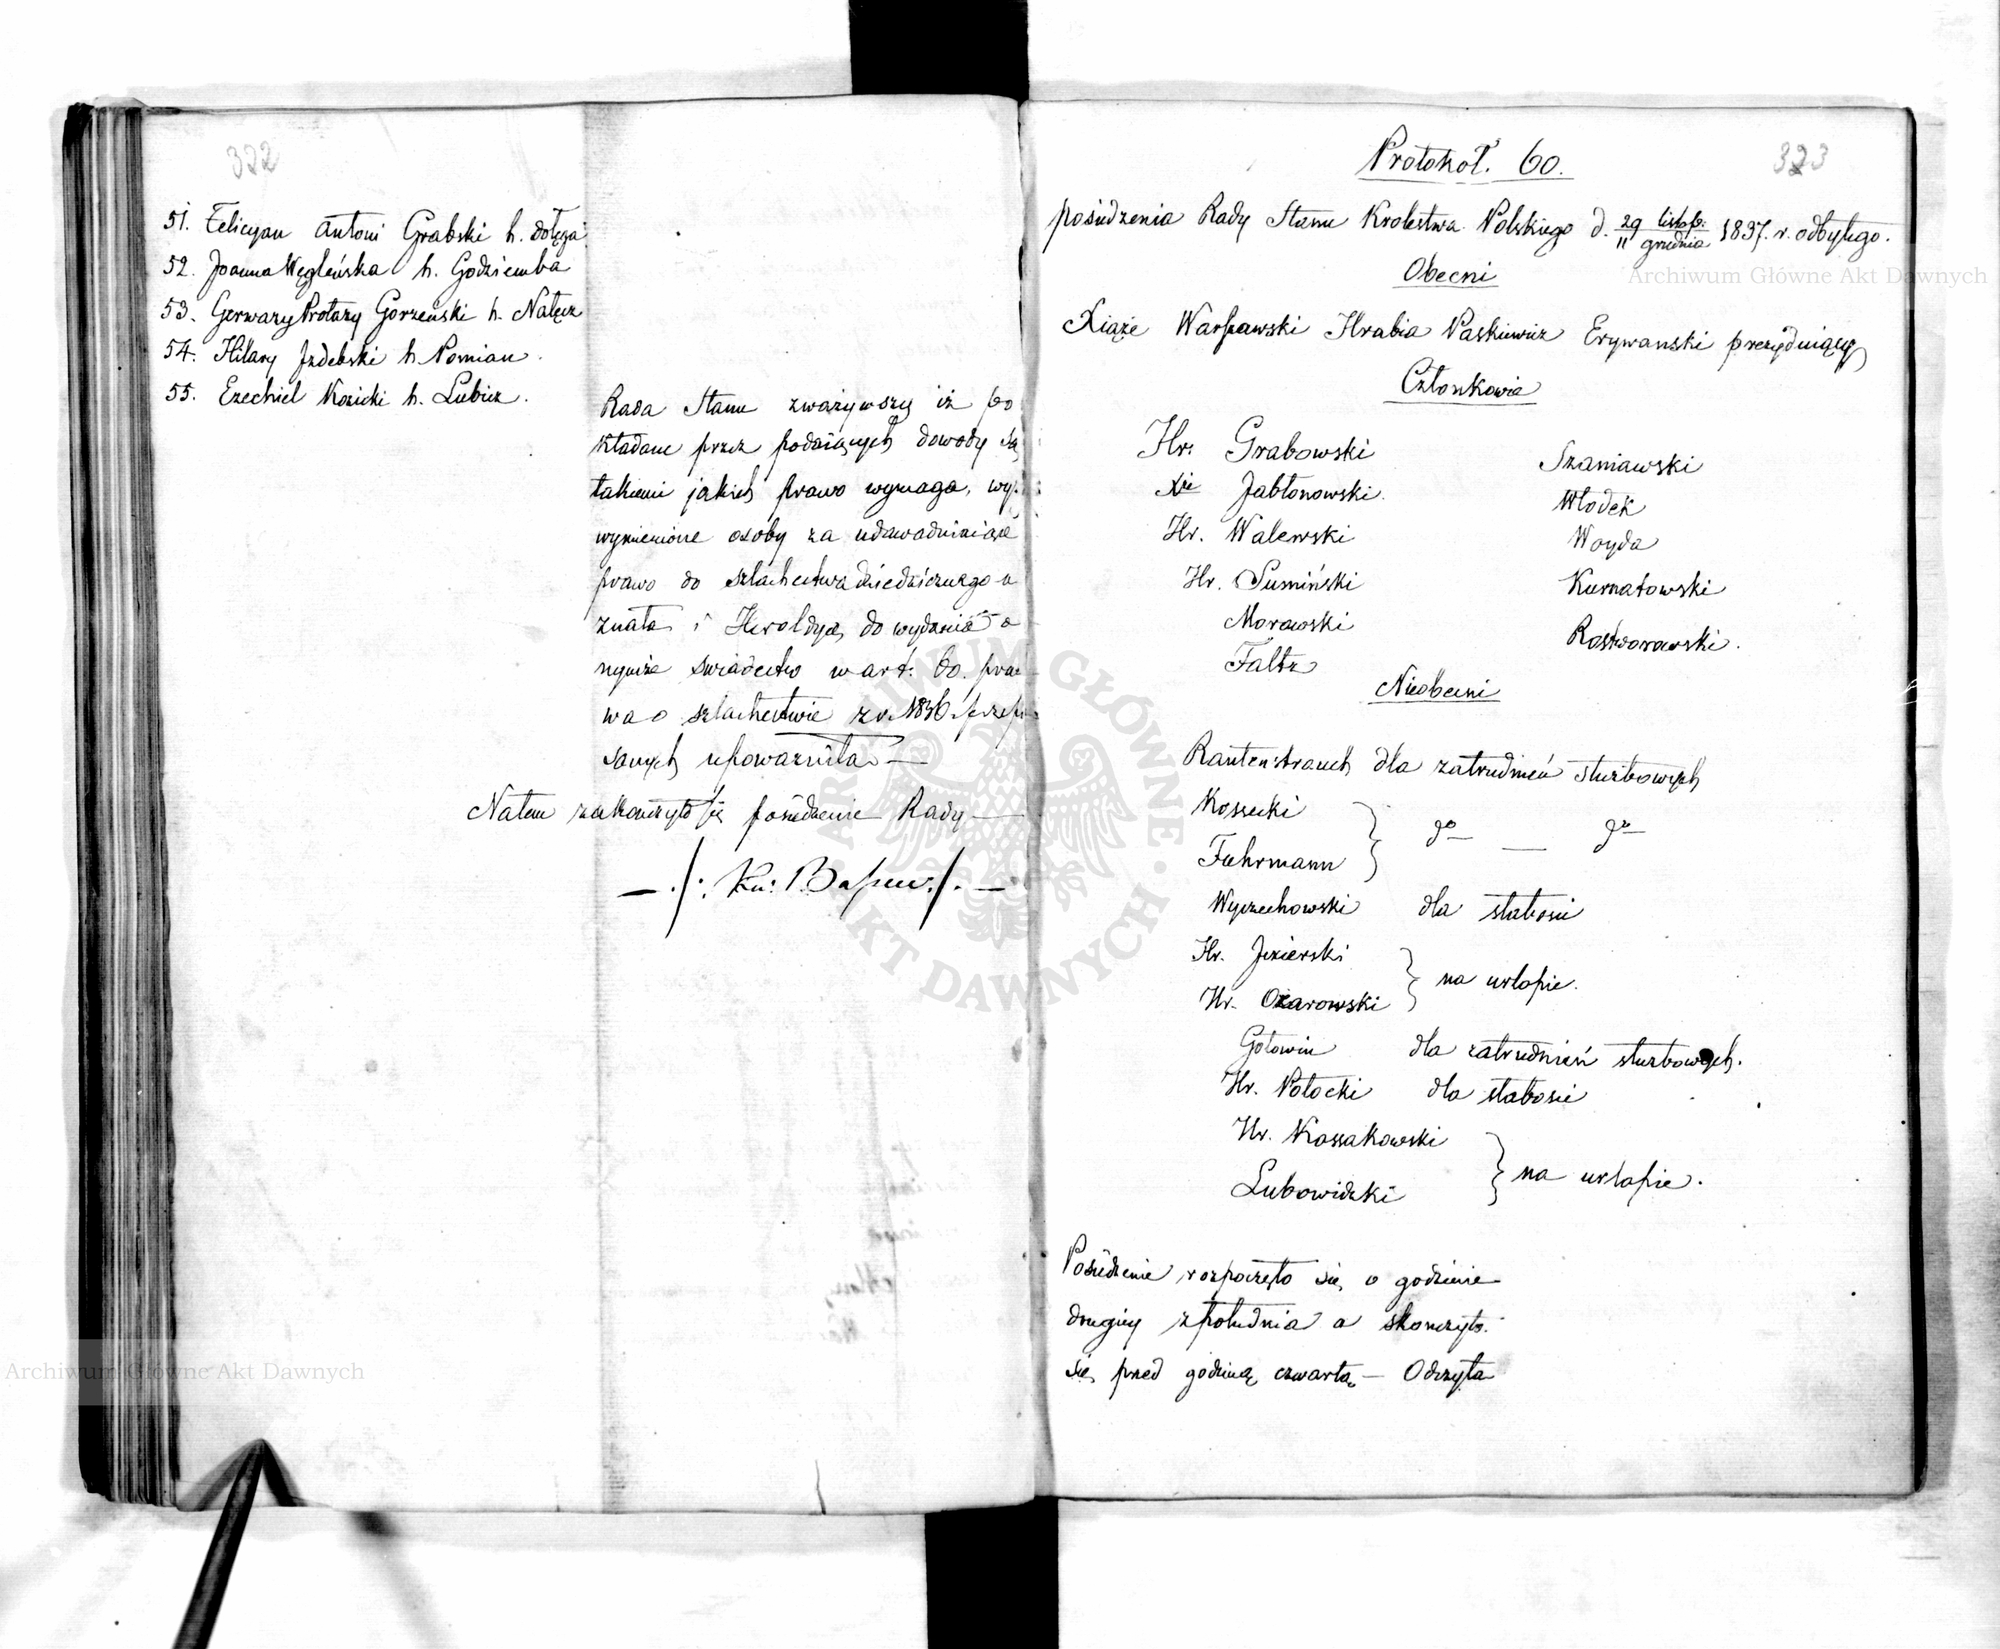 322
51. Felicyan Antoni Grabski h. Dołęga
52. Joanna Węgleńska h. Godziemba
53. Gerwazy Protazy Gorzeński h. Nałęcz
54. Hilary Jzdebski h. Pomian.
55. Ezechiel Kozicki h. Lubicz.
Rada Stanu zważywszy iż po
kładane przez podaiących dowody są
takiemi jakich prawo wymaga, wy
wymienione osoby za udowadniaiące
prawo do szlachectwa dziedzicznego u
znała i Heroldyą do wydania o
nymże świadectw w art: 60. pra
wa o szlachectwie z r. 1836. przepi
sanych upoważniła. —
Natem zakończyło się posiedzenie Rady —
— ./: Кн: Варш: /. —
323
Protokoł. 60.
posiedzenia Rady Stanu Krolestwa Polskiego d. 29 listop: / 11 grudnia 1837. r. odbytego.
Obecni
Xiąże Warszawski Hrabia Paskiewicz Erywanski prezyduiący
Członkowie
Hr. Grabowski Szaniawski
Xże Jabłonowski. Włodek
Hr. Walewski Woyda
Hr. Sumiński Kurnatowski
Morawski Rostworowski.
Faltz
Nieobecni
Rautenstrauch dla zatrudnień służbowych
Kossecki
do — do
Fuhrmann
Wyczechowski dla słabości
Hr. Jezierski
na urlopie.
Hr. Ożarowski
Gołowin dla zatrudnień służbowych.
Hr. Potocki dla słabości
Hr. Kossakowski
na urlopie.
Lubowidzki
Posiedzenie rozpoczęło się o godzinie
drugiey z południa a skonczyło.
się przed godziną czwartą — Odczyta
Archiwum Główne Akt Dawnych
Archiwum Główne Akt Dawnych
ARCHIWUM GŁÓWNE · AKT DAWNYCH ·